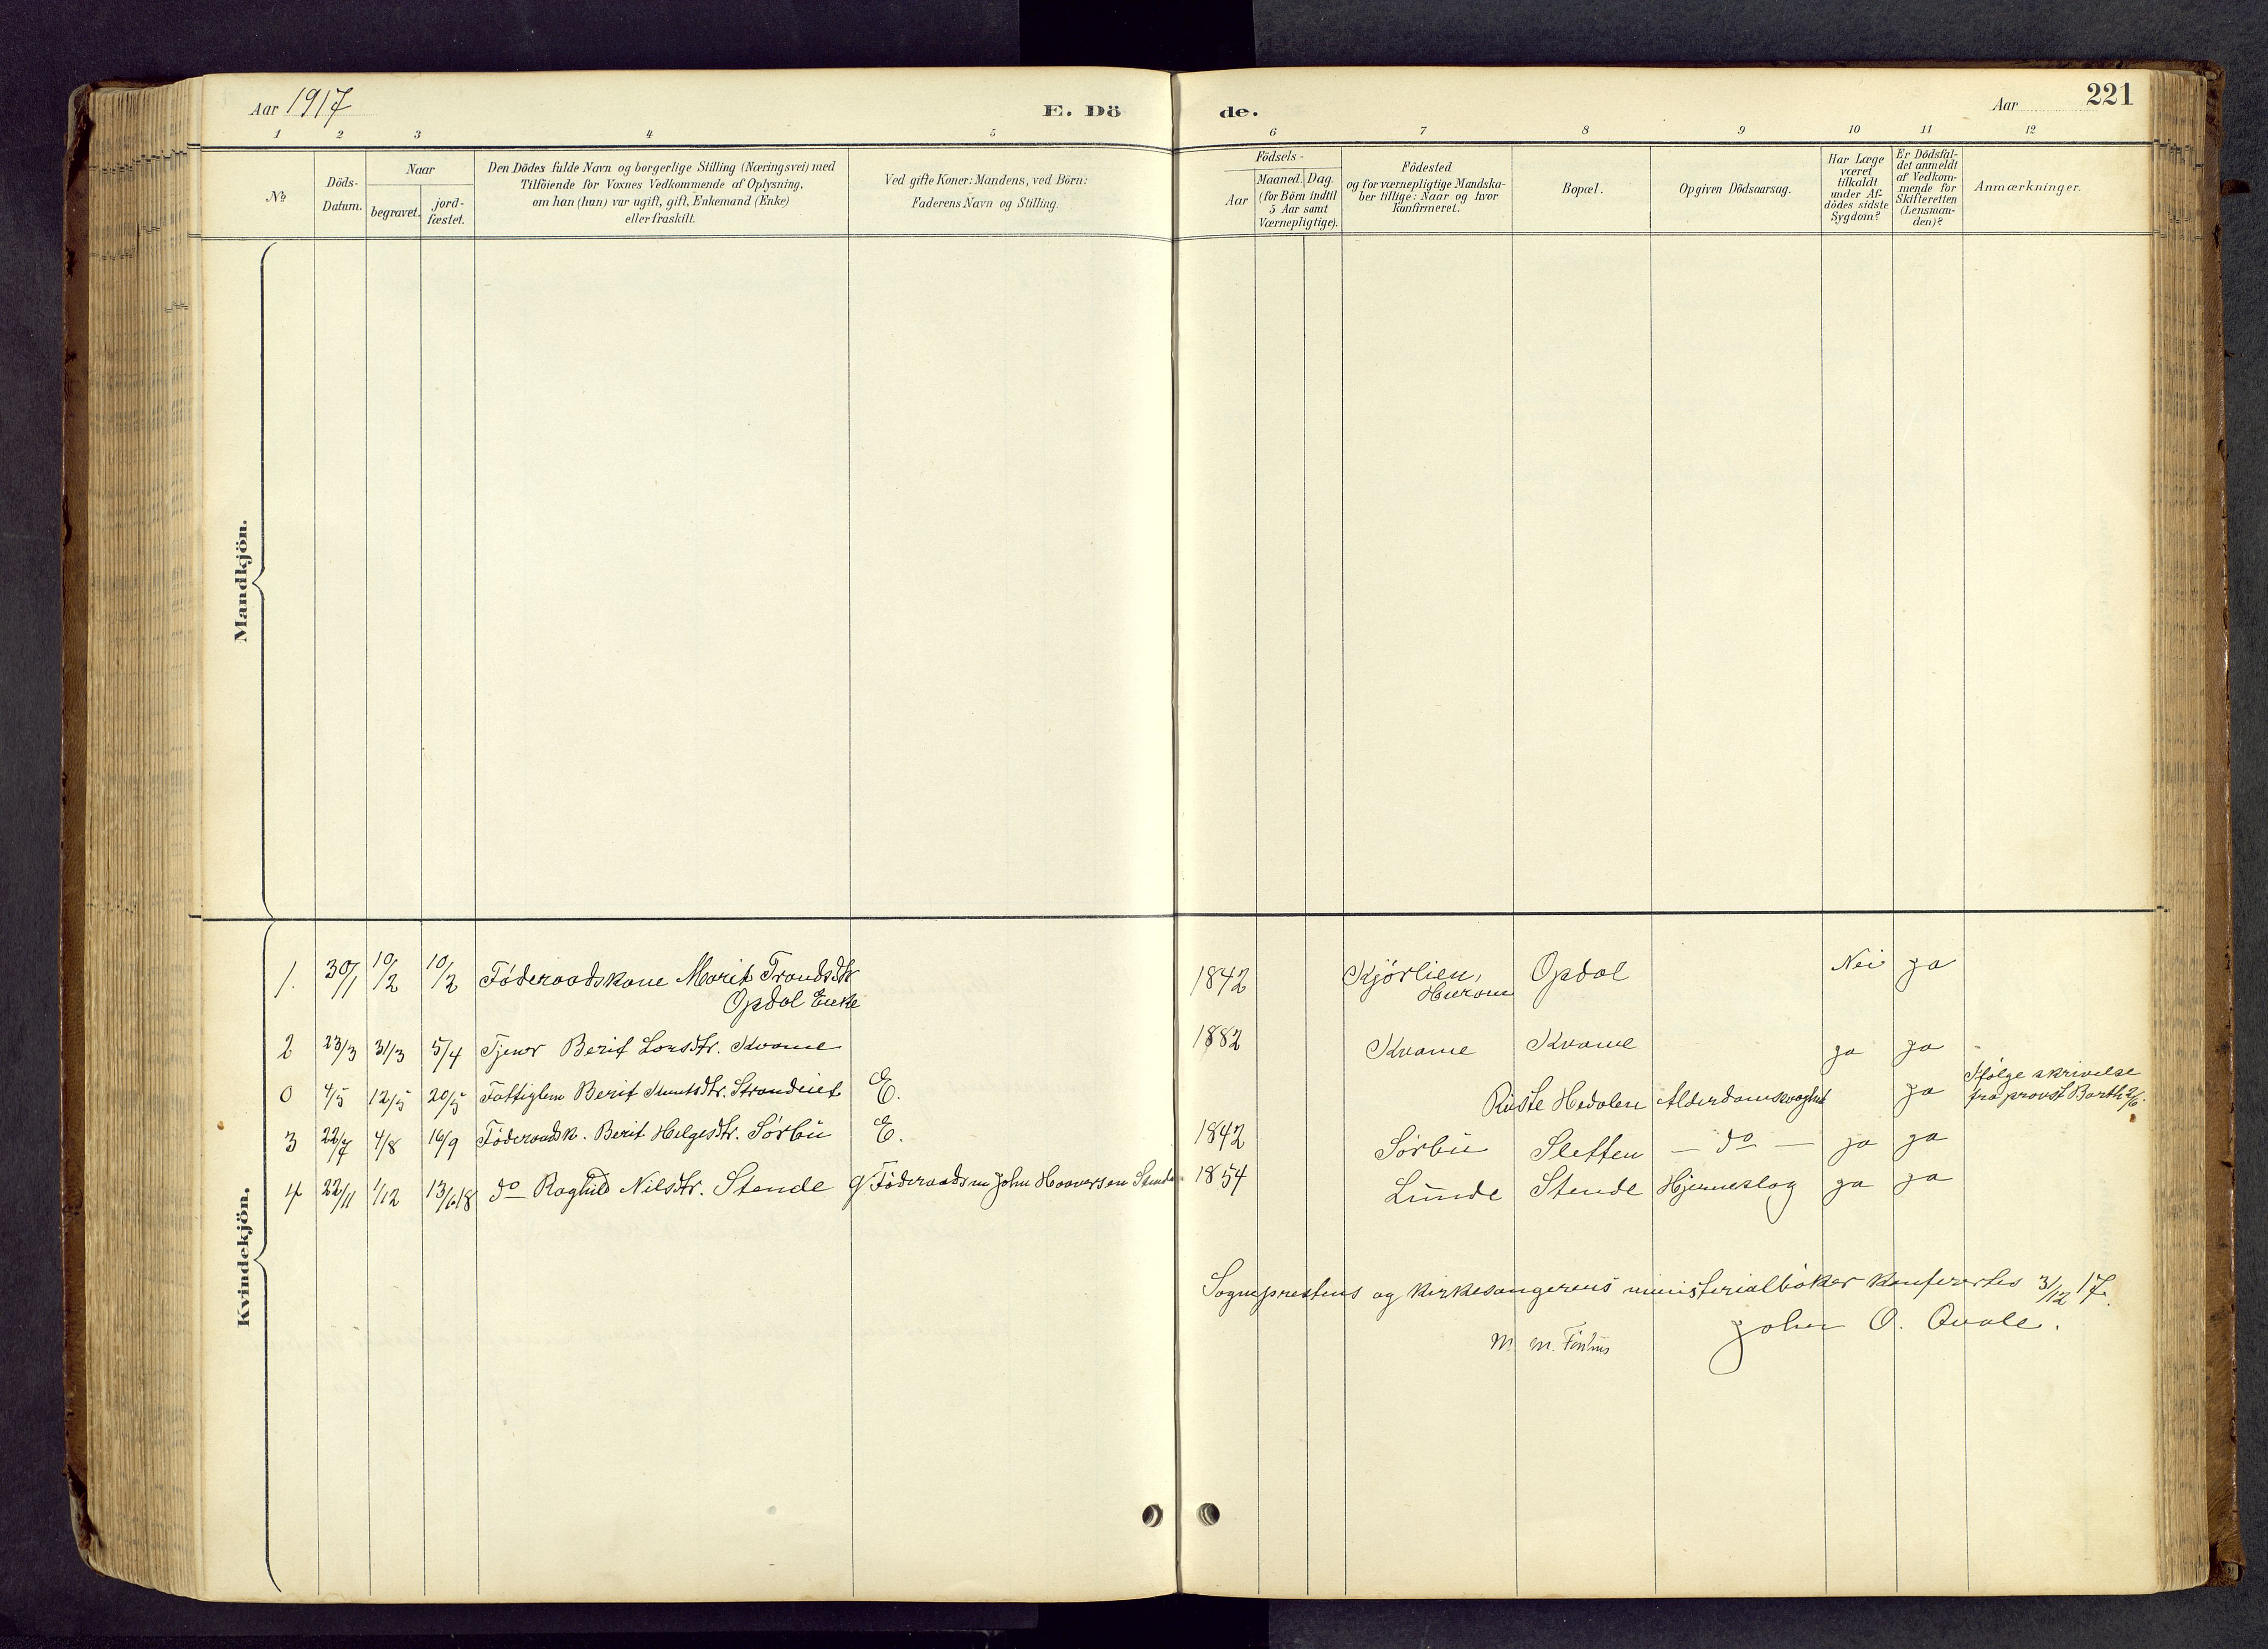 Aar 1917 E. Dö de. Aar 221
1 2 3 4 5 6 7 8 9 10 11 12
No
Döds-Datum.
Naar
begravet.
jord-fæstet.
Den Dödes fulde Navn og borgerlige Stilling (Næringsvei) med
Tilföiende for Voxnes Vedkommende af Oplysning,
om han (hun) var ugift, gift, Enkemand (Enke)
eller fraskilt.
Ved gifte Koner: Mandens, ved Börn:
Faderens Navn og Stilling.
Födsels-
Aar
Maaned. Dag.
(for Börn indtil
5 Aar samt
Værnepligtige).
Födested
og for værnepligtige Mandska-
ber tillige: Naar og hvor
konfirmeret.
Bopæl.
Opgiven Dödsaarsag.
Har Læge
været
tilkaldt
under Af-
dödes sidste
Sygdom?
Er Dödsfal-
det anmeldt
af Vedkom-
mende for
Skifteretten
(Lensman-
den)?
Anmærkninger.
Mandkjön.
Kvindekjön.
1. 30/1 10/2 10/2 Föderaadskone Marit Trondsdtr Opdal Enke 1842 Kjörlien, Hurom Opdal Nei ja
2 23/3 31/3 5/4 Tjener Berit Larsdtr. Kvame 1882 Kvame Kvame ja ja
0 4/5 12/5 20/5 Fattiglem Berit Knutsdtr. Strandeiet E. Ruste Hedalen Alderdomssvaghet ja Ifölge skrivelse
fra provst Barth 2/6.
3 22/7 4/8 16/9 Föderaadsk. Berit Helgesdtr. Sörbu E. 1842 Sörbu Sletten — do — ja ja
4 22/11 1/12 13/6 18 do Ragnild Nilsdtr. Stende g/ Föderaadsm John Haaversen Stende 1854 Lunde Stende Hjerneslag ja ja
Sogneprestens og kirkesangerens ministerialböker konferertes 31/12 17.
John O. Qvale.
M. M.